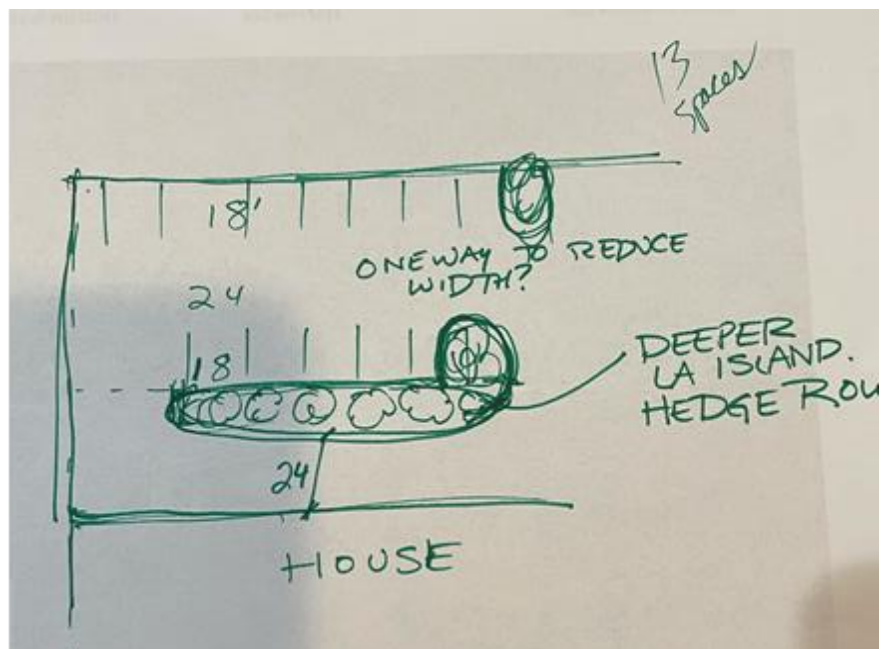 13
spaces
18'
ONE WAY TO REDUCE
WIDTH?
24
18
DEEPER
LA ISLAND.
HEDGE ROW
24
HOUSE